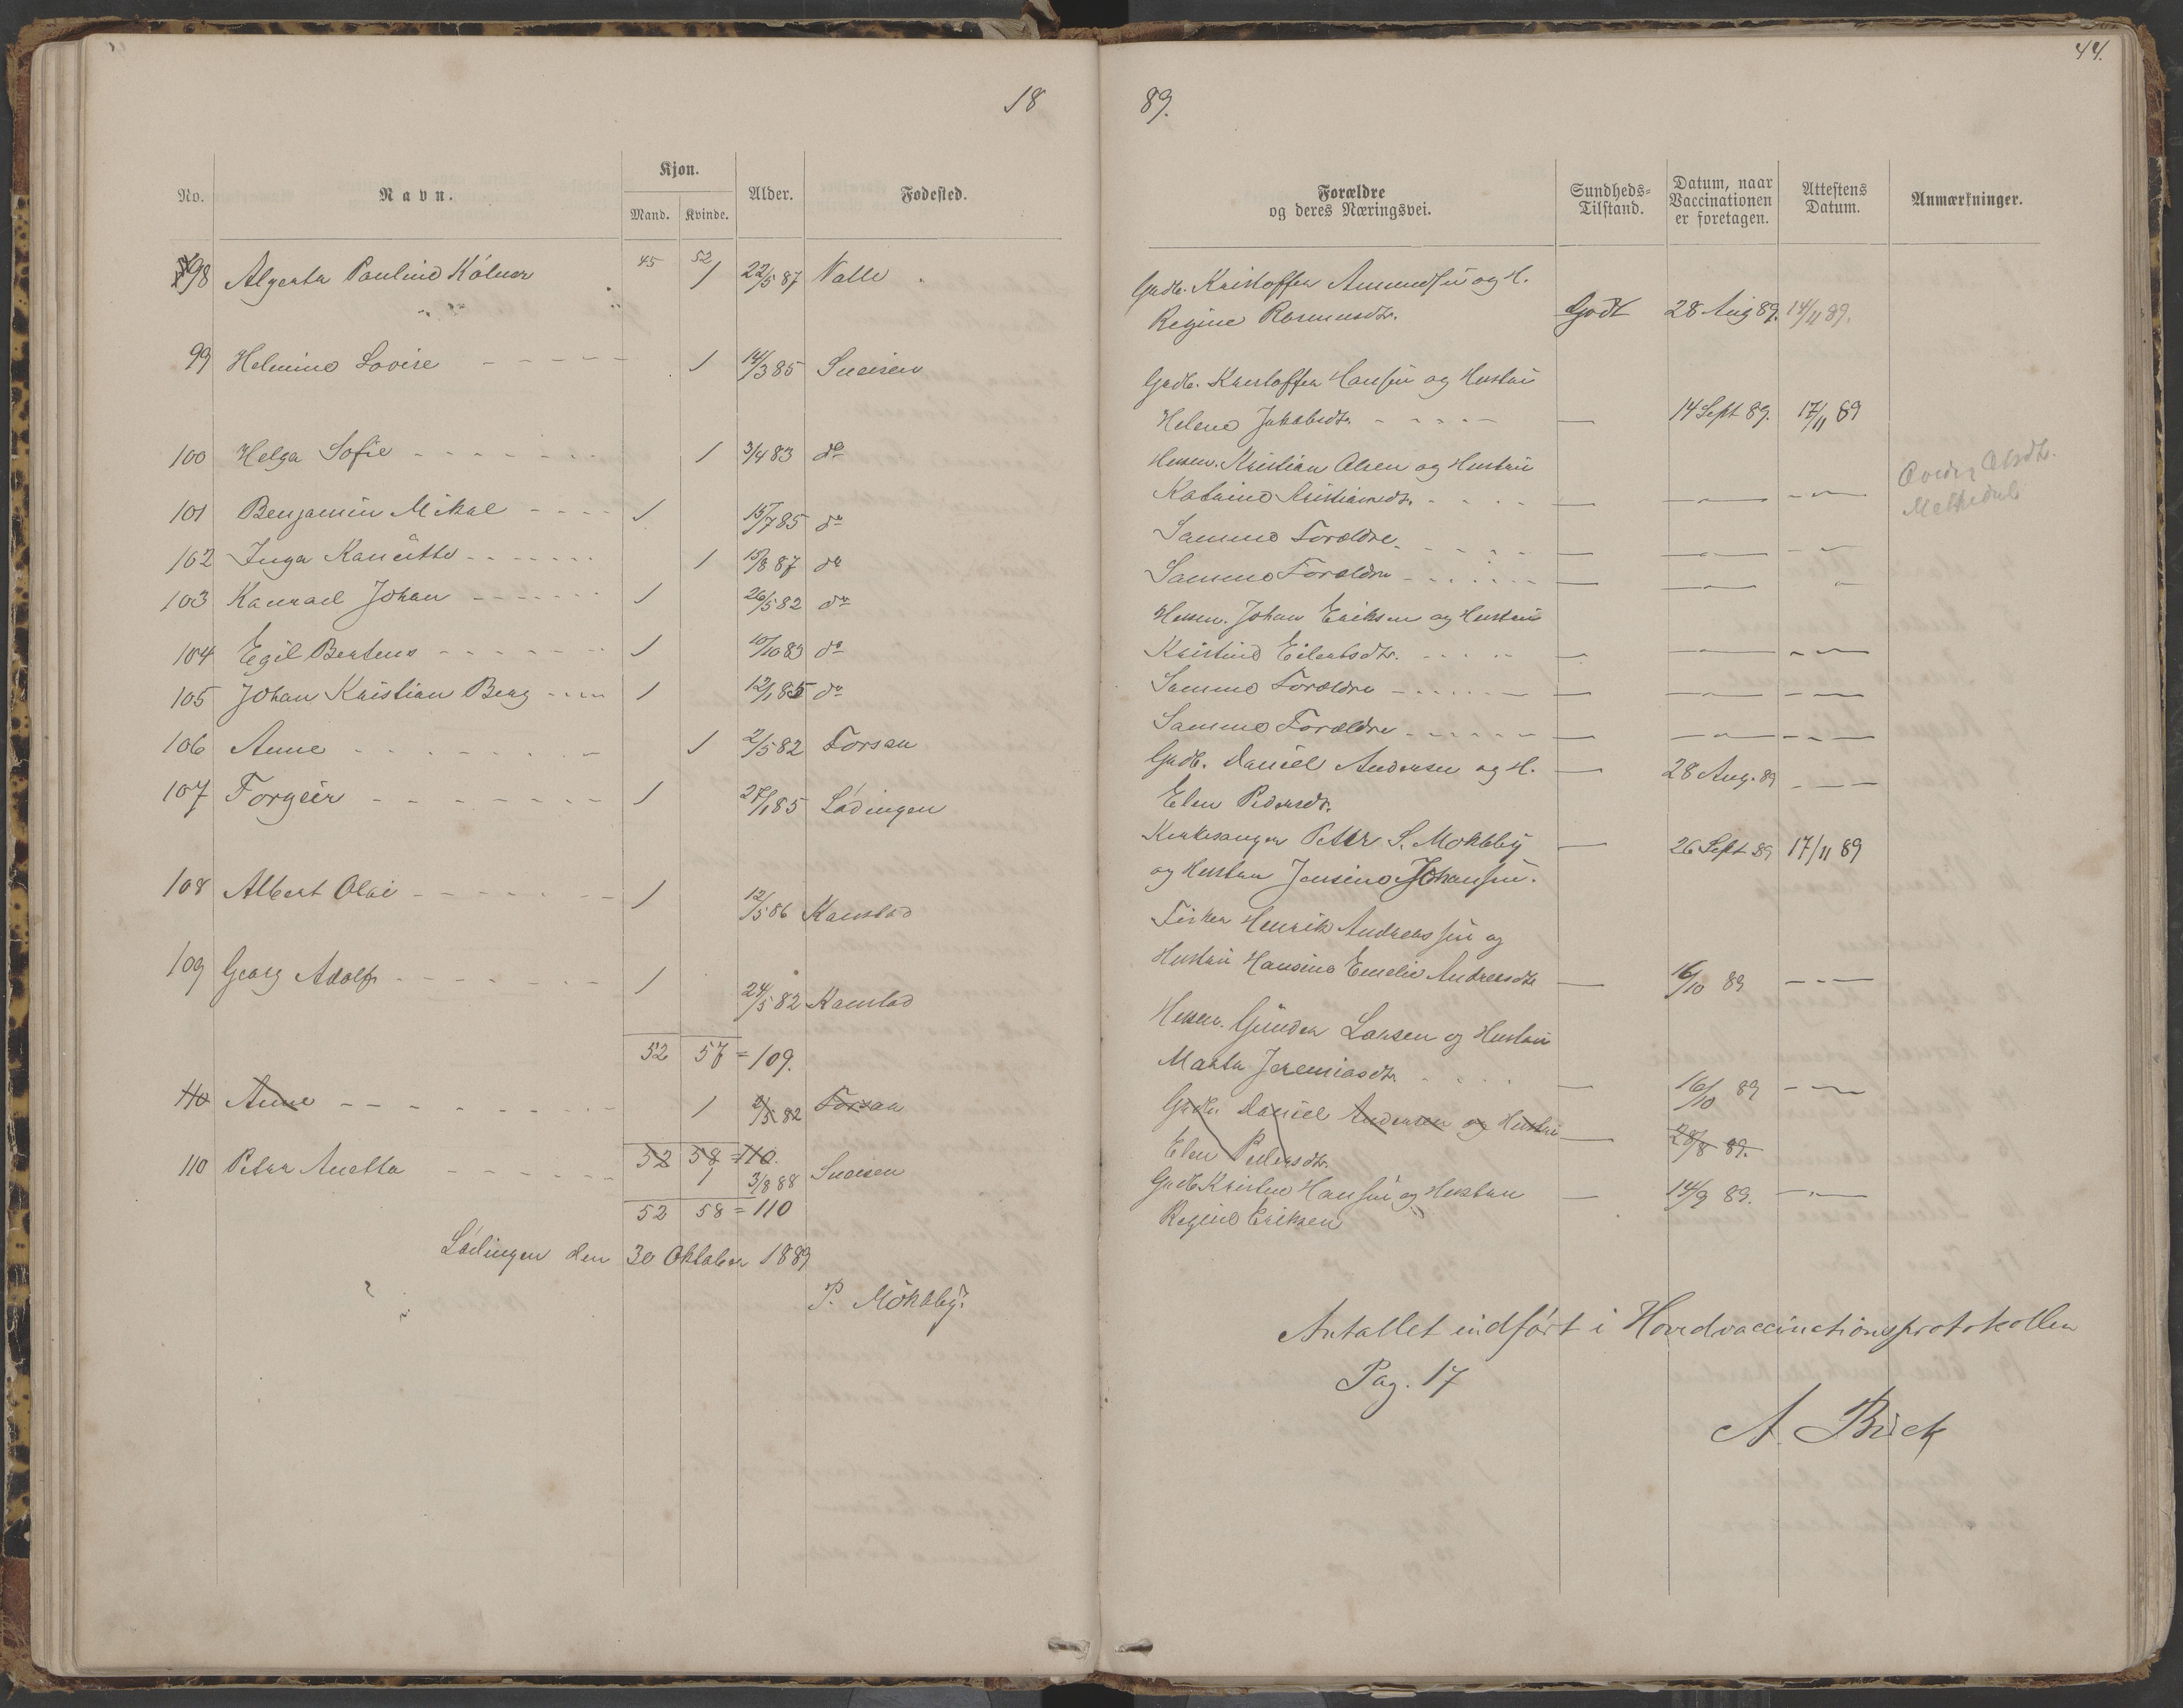 44.
18
89.
No. Navn. Kjøn. Mand. Kvinde. Alder. Fødested.
Forældre og deres Næringsvei. Sundheds-Tilstand. Datum, naar Vaccinationen er foretagen. Attestens Datum. Anmærkninger.
45 52
98 Algerta Pauline 1 22/5 87 Valle
Gadb. Kristoffer Amundsen og H.
Regine Rasmusdtr. Godt 28 Aug 89. 14/11 89.
99 Helmine Lovise - - - - - 1 14/3 85 Sneisen
Gadb. Kristoffer Hansen og Hustru
Helene Jakobsdtr. - - - - — 14 Sept 89. 17/11 89
100 Helga Sofie - - - - - - 1 3/4 83 do
Husm. Kristian Olsen og Hustru
Katrine Kristiansdtr. - - - — — - -
101 Benjamin Mikal - - - - 1 15/7 85 do
Samme Forældre - - - - — — - -
102 Inga - - - - - - 1 15/8 87 do
Samme Forældre - - - - — — -
103 Konrad Johan - - - - - - 1 26/5 82 do
Husm. Johan Eriksen og Hustru
Kristine Eilertsdtr. - - - - — — - -
104 Egil Bertens - - - - - 1 10/10 83 do
Samme Forældre - - - - - — — - -
105 Johan Kristian Berg - - - 1 12/1 85 do
Samme Forældre - - - - - — — - -
106 Anne - - - - - - - 1 2/5 82 Forsan
Gadb. Daniel Andersen og H. — 28 Aug. 89 - - -
Elen Pedersdtr.
107 Torgeir - - - - - - - 1 27/1 85 Lödingen
Kirkesanger Peter S. Mökleby — 26 Sept 89 17/11 89
og Hustru Jensine Johansen.
108 Albert Olai - - - - - - - 1 12/5 86 Kanstad
Fisker Henrik Andreassen og
Hustru Hansine Emelie Andreasdtr — 16/10 89 - - -
109 Georg Adolf - - - - - - 1 24/5 82 Kanstad
Husm. Gunder Larsen og Hustru
Marta Jeremiasdtr - - - - — 16/10 89 - - -
52 57 = 109.
110 Anne - - - - - - - - 1 2/5 82 Forsan
Gadb. Daniel Andersen og Hustru — 28/8 89.
Elen Pedersdtr.
52 58 = 110.
110 Petra Anetta - - - - - - 1 3/8 88 Sneisen
Gadb Kristen Hansen og Hustru — 14/9 89. - - -
Regine Eriksen
52 58 = 110
Lödingen den 30 Oktober 1889
P. Mökleby.
Antallet indført i Hovedvaccinationsprotokollen
Pag. 17